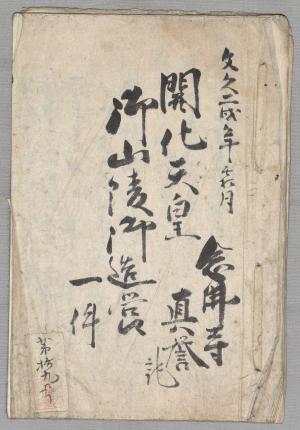 文久二戌年壬八月
開化天皇
御山陵御造営
一件
念佛寺
真誉
記
第拾九号